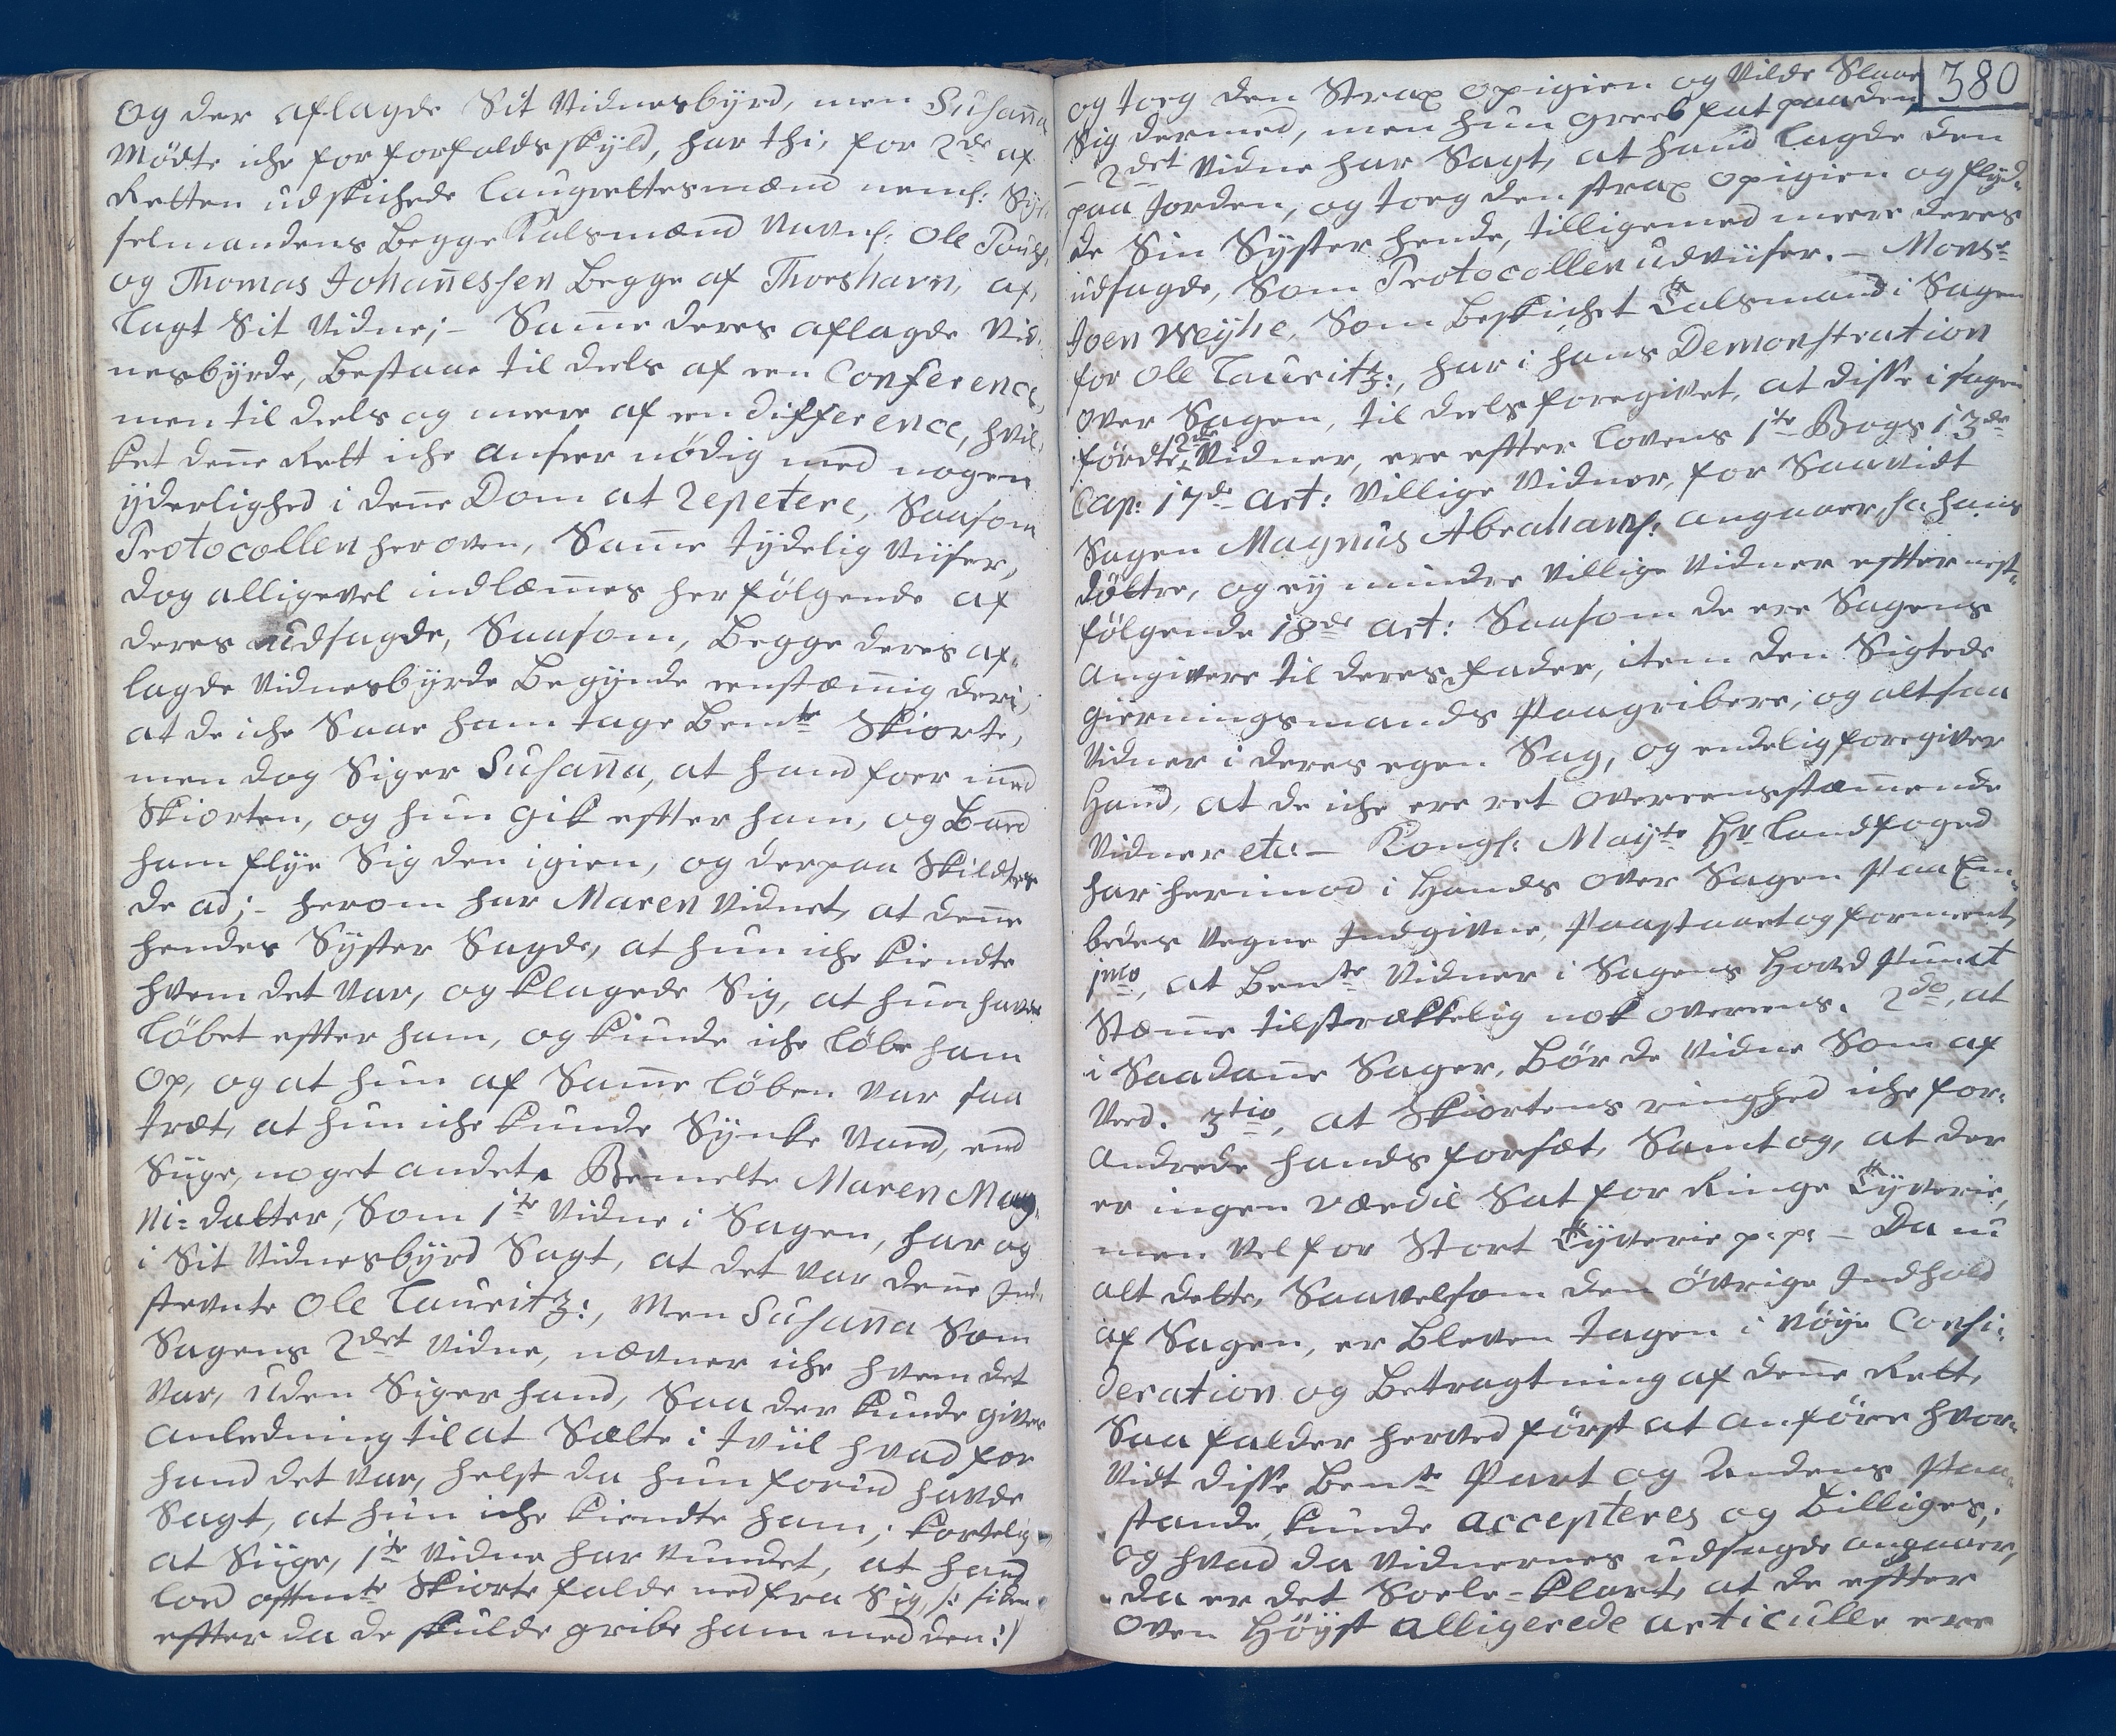 og der aflagde Sit Vidnesbyrd, men Susana
Mødte iche for forfalds skyld, har thi, for 2de af
Retten udskichede laugrettesmænd neml: Sys-
selmandens begge Kalsmænd Navnl: Ole Pouls:
og Thomas Johanessen begge af Thorshavn, af-
lagt Sit Vidne; – Same deres aflagde Vid-
nesbyrde, bestaar til deels af een Conference,
men til deels og meere af een difference, hvil-
ket dene Rett iche anseer nødig med nogen
yderlighed i dene Dom at repetere, Saasom
Protocollen her oven, Same tydelig Viiser,
dog alligevel indlæmes her følgende af
deres udsagde, Saasom, begge deres af-
lagde Vidnesbyrde begynde eenstæmig deri,
at de iche Saae ham tage bemte Skiorte,
men dog Siger Susana, at hand foer med
Skiorten, og hun gik efter ham, og bad
ham flye Sig den igien, og derpaa Skildtes
de ad; – herom har Maren Vidnet, at dene
hendes Syster Sagde, at hun iche kiendte
hvem det var, og klagede Sig, at hun havde
løbet efter ham, og kunde iche løbe ham
op, og at hun af Same løben var saa
træt, at hun iche kunde Synke Vand, end
Siige, noget andet. Bemelte Maren Mag-
ni-datter, Som 1te Vidne i Sagen, har og
i Sit Vidnesbyrd Sagt, at det var dene Ind-
stevnte Ole Lauritz:, Men Susana Som
Sagens 2det Vidne, nævner iche hvem det
var, uden Siger hand, Saa der kunde gives
anledning til at Sætte i tviil hvad for
hand det var, helst da hun forind havde
Sagt, at hun iche kiendte ham; kortelig
at Siige, 1te Vidne har vundet, at hand
lod oftmte Skiorte falde ned fra Sig, /: siden
efter da de skulde gribe ham med den :/
380
og toeg den Strax op igien og Vilde Slaae
Sig dermed, men hun greeb fat paa den,
– 2det Vidne har Sagt, at hand lagde den
paa Jorden, og toeg den strax op igien og flyd-
de Sin Syster hende, tilligemed meere deres
udsagde, Som Protocollen udviiser. – Monsr
Joen Weyhe, Som beskichet Talsmand i Sagen
for Ole Lauritz:, har i hans Demonstration
over Sagen, til deels foregivet, at disse i sagen
førdte 2de Vidner, ere efter Lovens 1te Bogs 13de
Cap: 17de Art: Villige Vidner, for Saavidt
Sagen Magnus Abrahams: angaaer, sc: hans
døttre, og ey mindre Villige Vidner efter nest-
følgende 18de Art: Saasom de ere Sagens
Angivere til deres Fader, item den Sigtede
Gierningsmands Paagribere; og altsaa
Vidner i deres egen Sag, og endelig foregiver
Hand, at de iche ere ret overeensstæmende
Vidner etc: – Kongl: Mayts Hr Landfoged
har herimod i Hands over Sagen paa Em-
bedes Vegne Indgivne, Paastaaet og formeent,
1mo, at bemte Vidner i Sagens Hoved Punct
Stæme tilstrækkelig nok overeens. 2do, at
i Saadane Sager, bør de Vidne Som af
Veed. 3tio, at Skiortens ringhed iche for-
andrede hands forsæt, Samt og, at der
er ingen værdie Sat for Ringe Tyverie,
men vel for Stort Tyverie p:p: – Da nu
alt dette, Saavelsom den øvrige Indhold
af Sagen, er bleven tagen i nøye Consi-
deration og betragtning af dene Rett,
Saa falder herved først at anføre hvor-
vidt disse bemte Part og Andens Paa-
stande, kunde accepteres og billiges;
og hvad da Vidnernes udsagde angaaer,
da er det Soele-klart, at de efter
oven Høyst alligerede articulle ere